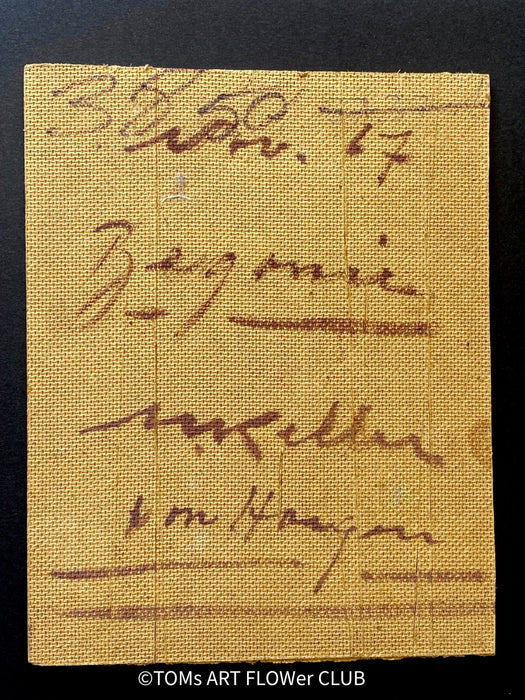 38.50
Nov. 67
Begonie
M. Keller
von Hongen
©TOMs ART FLOWer CLUB